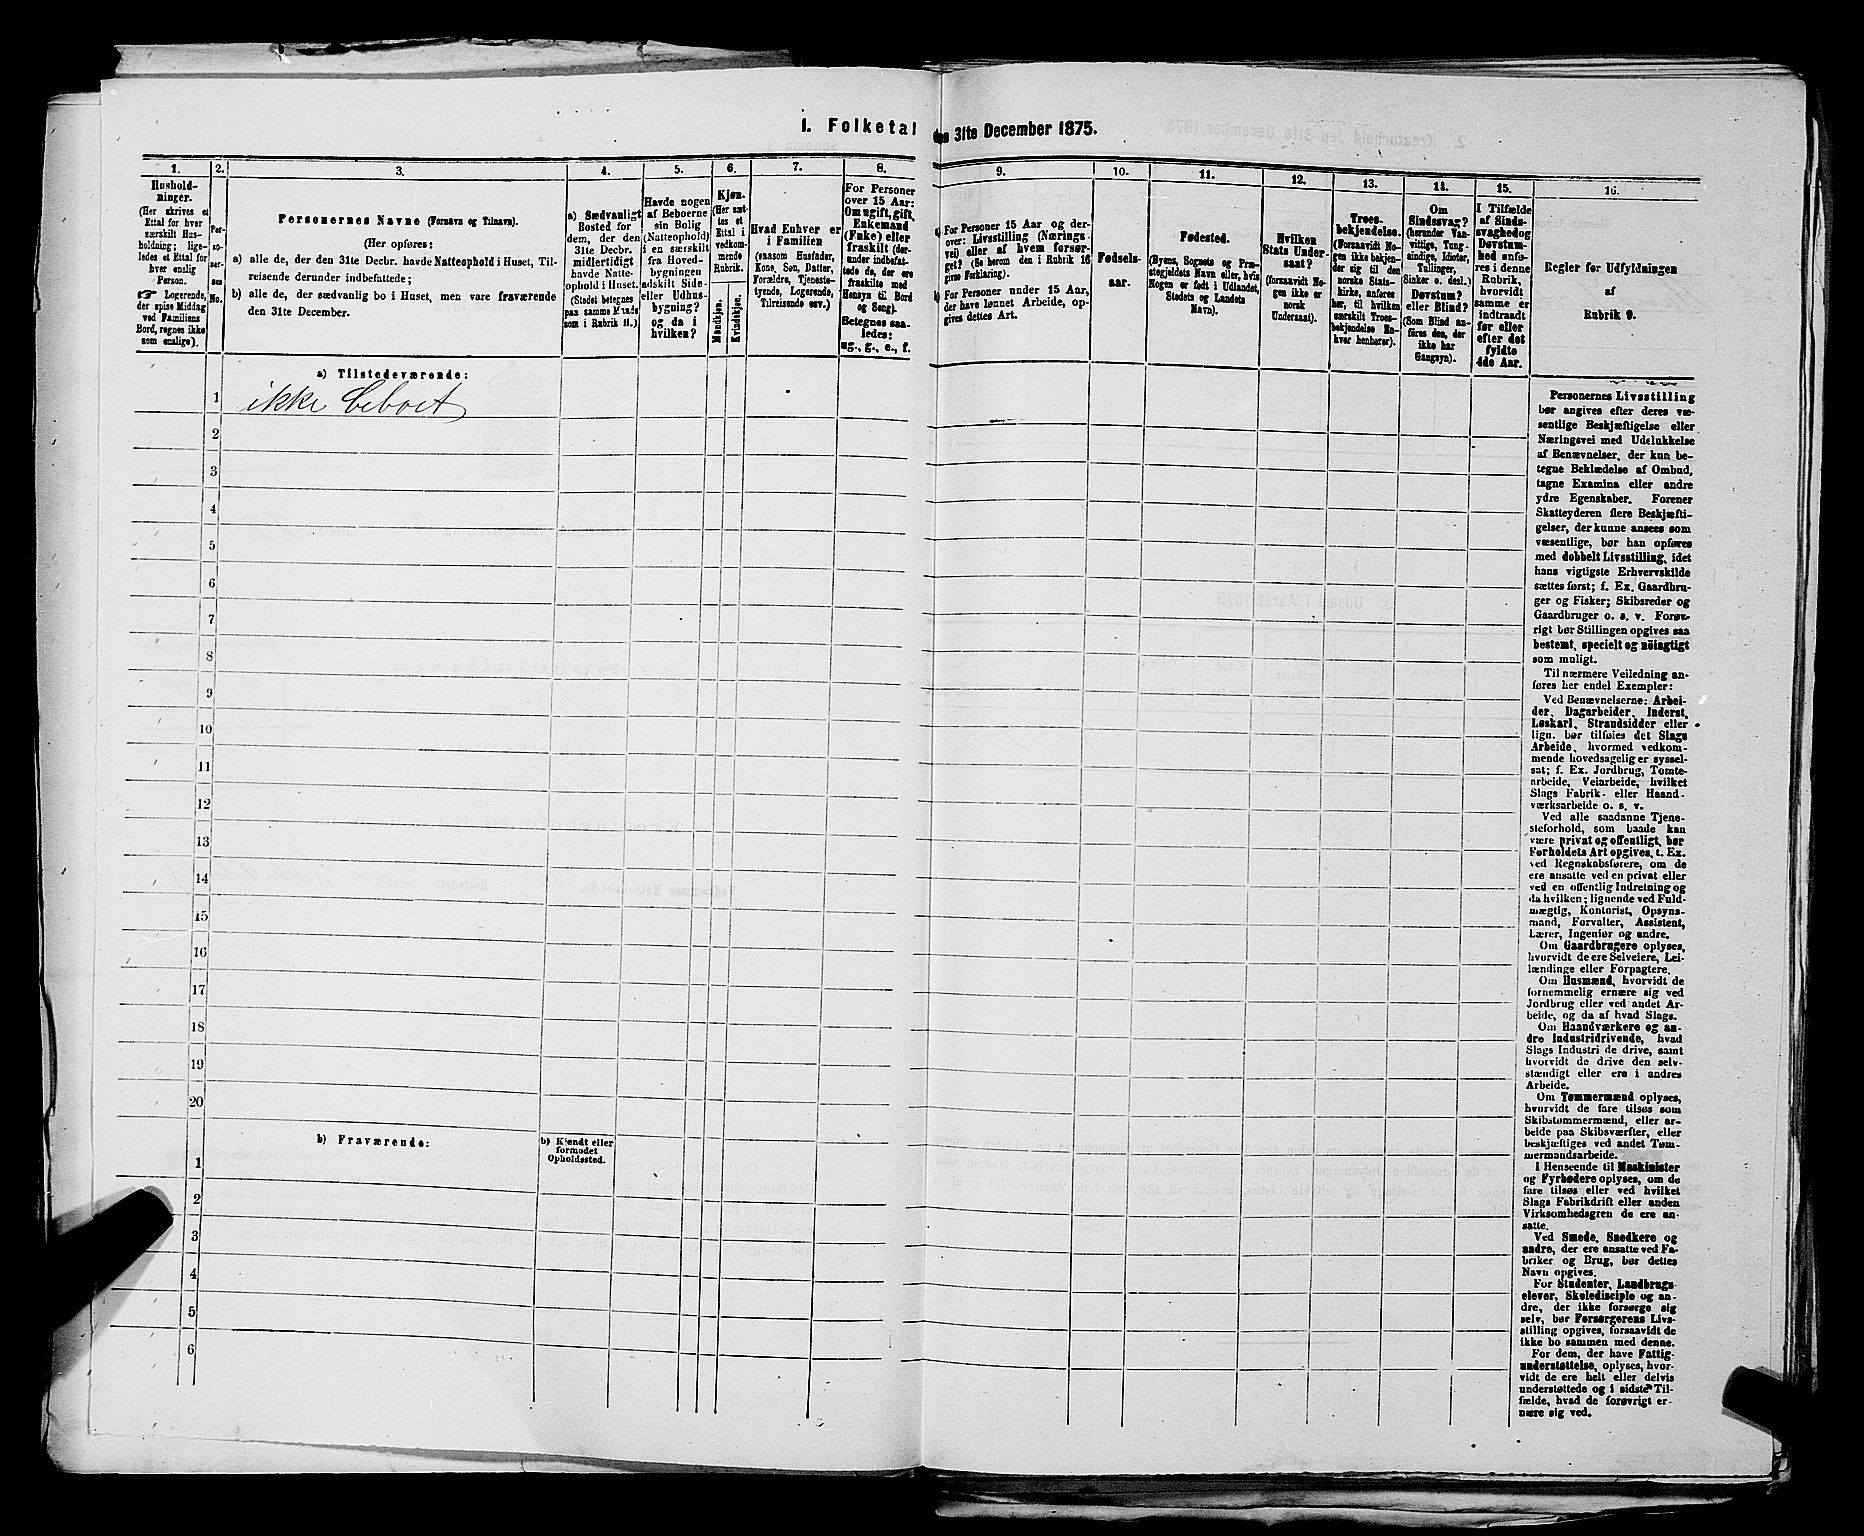 1. Folketal den 31te December 1875.
1.
Hushold-
ninger.
(Her skrives et
Ettal for hver
særskilt Hus-
holdning; lige-
ledes et Ettal for
hver enslig
Person.
☞ Logerende,
der spise Middag
ved Familiens
Bord, regnes ikke
som enslige).
2.
Per-
so-
ner-
nes
No.
3.
Personernes Navne (Fornavn og Tilnavn).
(Her opføres:
a) alle de, der den 31te Decbr. havde Natteophold i Huset, Til-
reisende derunder indbefattede;
b) alle de, der sædvanlig bo i Huset, men vare fraværende
den 31te December.
4.
a) Sædvanligt
Bosted for
dem, der den
31te Decbr.
midlertidigt
havde Natte-
ophold i Huset.
(Stedet betegnes
paa samme Maade
som i Rubrik 11.)
5.
Havde nogen
af Beboerne
sin Bolig
(Natteophold)
i en særskilt
fra Hoved-
bygningen
adskilt Side-
eller Udhus-
bygning?
og da i
hvilken?
6.
Kjøn.
(Her sæt-
tes et
Ettal i
vedkom-
mende
Rubrik.
Mandkjøn.
Kvindekjøn.
7.
Hvad Enhver er
i Familien
(saasom Husfader,
Kone, Søn, Datter,
Forældre, Tjeneste-
tyende, Logerende,
Tilreisende osv.)
8.
For Personer
over 15 Aar:
Om ugift, gift,
Enkemand
(Enke) eller
fraskilt (der-
under indbefat-
tede de, der ere
fraskilte med
Hensyn til Bord
og Seng).
Betegnes saa-
ledes:
ug., g., e., f.
9.
a) For Personer 15 Aar og der-
over: Livsstilling (Nærings-
vei) eller af hvem forsør-
get? (Se herom den i Rubrik 16
givne Forklaring).
b) For Personer under 15 Aar,
der have lønnet Arbeide, op-
gives dettes Art.
10.
Fødsels-
aar.
11.
Fødested.
(Byens, Sognets og Præ-
stegjeldets Navn eller, hvis
Nogen er født i Udlandet,
Stedets og Landets
Navn).
12.
Hvilken
Stats Under-
saat?
(forsaavidt No-
gen ikke er
norsk
Undersaat).
13.
Troes-
bekjendelse.
(Forsaavidt No-
gen ikke bekjen-
der sig til den
norske Stats-
kirke, anføres
her, til hvilken
særskilt Troes-
bekjendelse En-
hver henhører).
14.
Om
Sindssvag?
(herunder Van-
vittige, Tung-
sindige, Idioter,
Tullinger,
Sinker o. desl.)
Døvstum?
eller Blind?
(Som Blind an-
føres den, der
ikke har
Gangsyn).
15.
I Tilfælde
af Sinds-
svaghed og
Døvstum-
hed anfø-
res i denne
Rubrik,
hvorvidt
samme er
indtraadt
før eller
efter det
fyldte
4de Aar.
16.
Regler for Udfyldningen
af
Rubrik 9.
a) Tilstedeværende:
1 ikke beboet
2
3
4
5
6
7
8
9
10
11
12
13
14
15
16
17
18
19
20
b) Fraværende:
b) Kjendt eller
formodet
Opholdssted.
1
2
3
4
5
6
Personernes Livsstilling
bør angives efter deres væ-
sentlige Beskjæftigelse eller
Næringsvei med Udelukkelse
af Benævnelser, der kun be-
tegne Beklædelse af Ombud,
tagne Examina eller andre
ydre Egenskaber. Forener
Skatteyderen flere Beskjæfti-
gelser, der kunne ansees som
væsentlige, bør han opføres
med dobbelt Livsstilling, idet
hans vigtigste Erhvervskilde
sættes først; f. Ex. Gaardbru-
ger og Fisker; Skibsreder og
Gaardbruger o. s. v. Forøv-
rigt bør Stillingen opgives saa
bestemt, specielt og nøiagtigt
som muligt.
Til nærmere Veiledning an-
føres her endel Exempler:
Ved Benævnelserne: Arbei-
der, Dagarbeider, Inderst,
Løskarl, Strandsidder eller
lign. bør tilføies det Slags
Arbeide, hvormed vedkom-
mende hovedsagelig er syssel-
sat; f. Ex. Jordbrug, Tomte-
arbeide, Veiarbeide, hvilket
Slags Fabrik- eller Haand-
værksarbeide o. s. v.
Ved alle saadanne Tjene-
steforhold, som baade kan
være privat og offentligt, bør
Forholdets Art opgives, t. Ex.
ved Regnskabsførere, om de
ere ansatte ved en privat eller
ved en offentlig Indretning og
da hvilken; lignende ved Fuld-
mægtig, Kontorist, Opsyns-
mand, Forvalter, Assistent,
Lærer, Ingeniør og andre.
Om Gaardbrugere oplyses,
hvorvidt de ere Selveiere, Lei-
lændinge eller Forpagtere.
Om Husmænd, hvorvidt de
fornemmelig ernære sig ved
Jordbrug eller ved andet Ar-
beide, og da af hvad Slags.
Om Haandværkere og an-
dre Industridrivende, hvad
Slags Industri de drive, samt
hvorvidt de drive den selv-
stændigt eller ere i andres
Arbeide.
Om Tømmermænd oplyses,
hvorvidt de fare tilsøs som
Skibstømmermænd, eller ar-
beide paa Skibsværfter, eller
beskjæftiges ved andet Tøm-
mermandsarbeide.
I Henseende til Maskinister
og Fyrbødere oplyses, om de
fare tilsøs eller ved hvilket
Slags Fabrikdrift eller anden
Virksomhedsgren de ere an-
satte.
Ved Smede, Snedkere og
andre, der ere ansatte ved Fa-
briker og Brug, bør dettes
Navn opgives.
For Studenter, Landbrugs-
elever, Skoledisciple og an-
dre, der ikke forsørge sig
selv, bør Forsørgerens Livs-
stilling opgives, forsaavidt de
ikke bo sammen med denne.
For dem, der have Fattig-
understøttelse, oplyses, hvor-
vidt de ere helt eller delvis
understøttede og i sidste Til-
fælde, hvad de forøvrigt er-
nære sig ved.